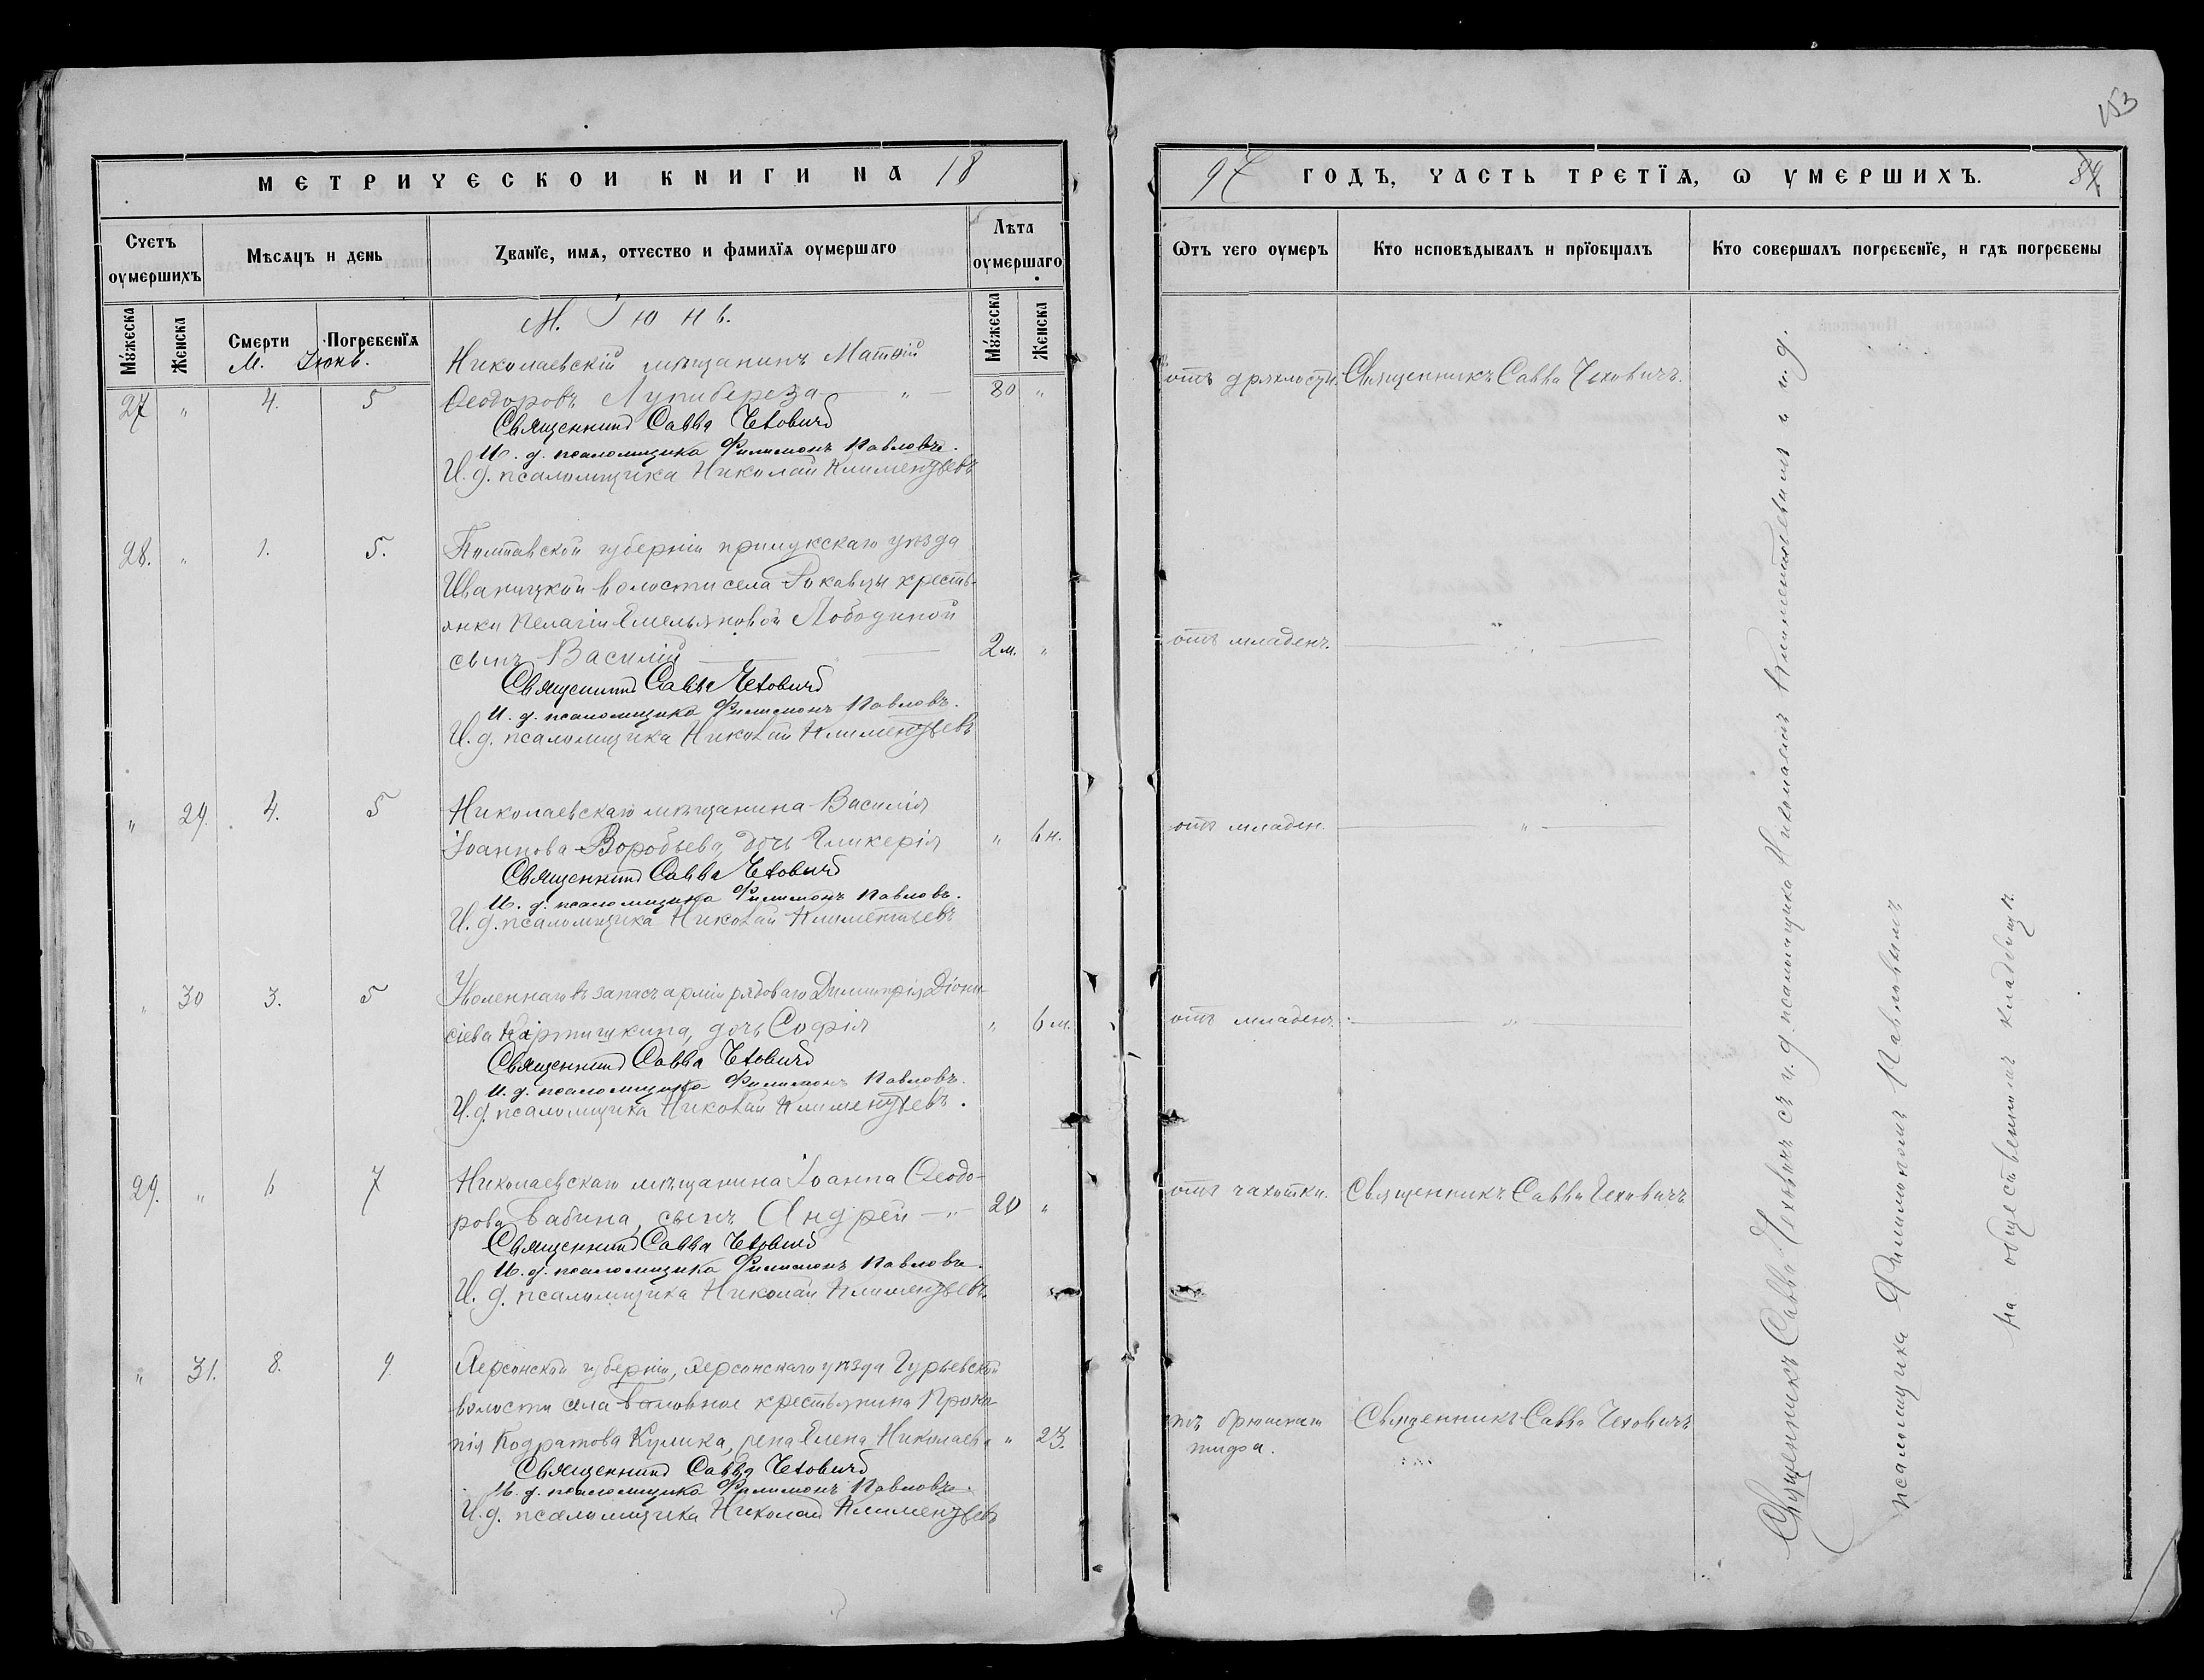 153
МЕТРИЧЕСКОИ КНИГИ НА 18
97 ГОДЪ, ЧАСТЬ ТРЕТЇѦ, Ѡ ОУМЕРШИХЪ.
Счетъ оумершихъ
Мѣсяцъ и день
Званїе, имѧ, отчество и фамилїѧ оумершаго
Лѣта оумершаго
Ѿтъ чего оумеръ
Кто исповѣдывалъ и прїобщалъ
Кто совершалъ погребенїе, и гдѣ погребены
Мужеска
Женска
Смерти
Погребенїѧ
Мужеска
Женска
М. Іюнь.
М. Іюнь.
Николаевскій мѣщанинъ Матѳій
27 " 4. 5 Ѳеодоровъ Лупибереза — " — 80 " отъ дряхлости. Священникъ Савва Чеховичъ.
Священникъ Савва Чеховичъ
И. д. псаломщика Филимонъ Павловъ.
И. д. псаломщика Николай Климентьевъ
28. " 1. 5. Полтавской губерніи прилукскаго уѣзда
Иваницкой волости села Рокавцы кресть-
янки Пелагіи Емельяновой Лободиной
сынъ Василій — 2 м. " отъ младенч. — " —
Священникъ Савва Чеховичъ
И. д. псаломщика Филимонъ Павловъ.
И. д. псаломщика Николай Климентьевъ
" 29. 4. 5 Николаевскаго мѣщанина Василія
Іоаннова Воробьева, дочь Гликерія " 6 н. отъ младен. — " —
Священникъ Савва Чеховичъ
И. д. псаломщика Филимонъ Павловъ.
И. д. псаломщика Николай Климентьевъ
" 30 3. 5 Уволеннаго въ запасъ арміи рядоваго Димитрія Діони-
сіева Картишкина, дочь Софія " 6 м. отъ младенч. — " —
Священникъ Савва Чеховичъ
И. д. псаломщика Филимонъ Павловъ.
И. д. псаломщика Николай Климентьевъ.
29. " 6 7 Николаевскаго мѣщанина Іоанна Ѳеодо-
рова Бабина, сынъ Андрей — " — 20 " отъ чахотки. Священникъ Савва Чеховичъ
Священникъ Савва Чеховичъ
И. д. псаломщика Филимонъ Павловъ.
И. д. псаломщика Николай Климентьевъ.
" 31. 8. 9. Херсонской губерніи, херсонскаго уѣзда Гурьевской
волости села крестьянина Проко-
пія Кодратова Кулика, жена Елена Николаева " 23. отъ брюшнаго тифа. Священникъ Савва Чеховичъ
Священникъ Савва Чеховичъ
И. д. псаломщика Филимонъ Павловъ.
И. д. псаломщика Николай Климентьевъ
Священникъ Савва Чеховичъ съ и. д. псаломщика Николаемъ Климентьевымъ и и. д.
псаломщика Филимономъ Павловымъ
на общественномъ кладбищѣ.